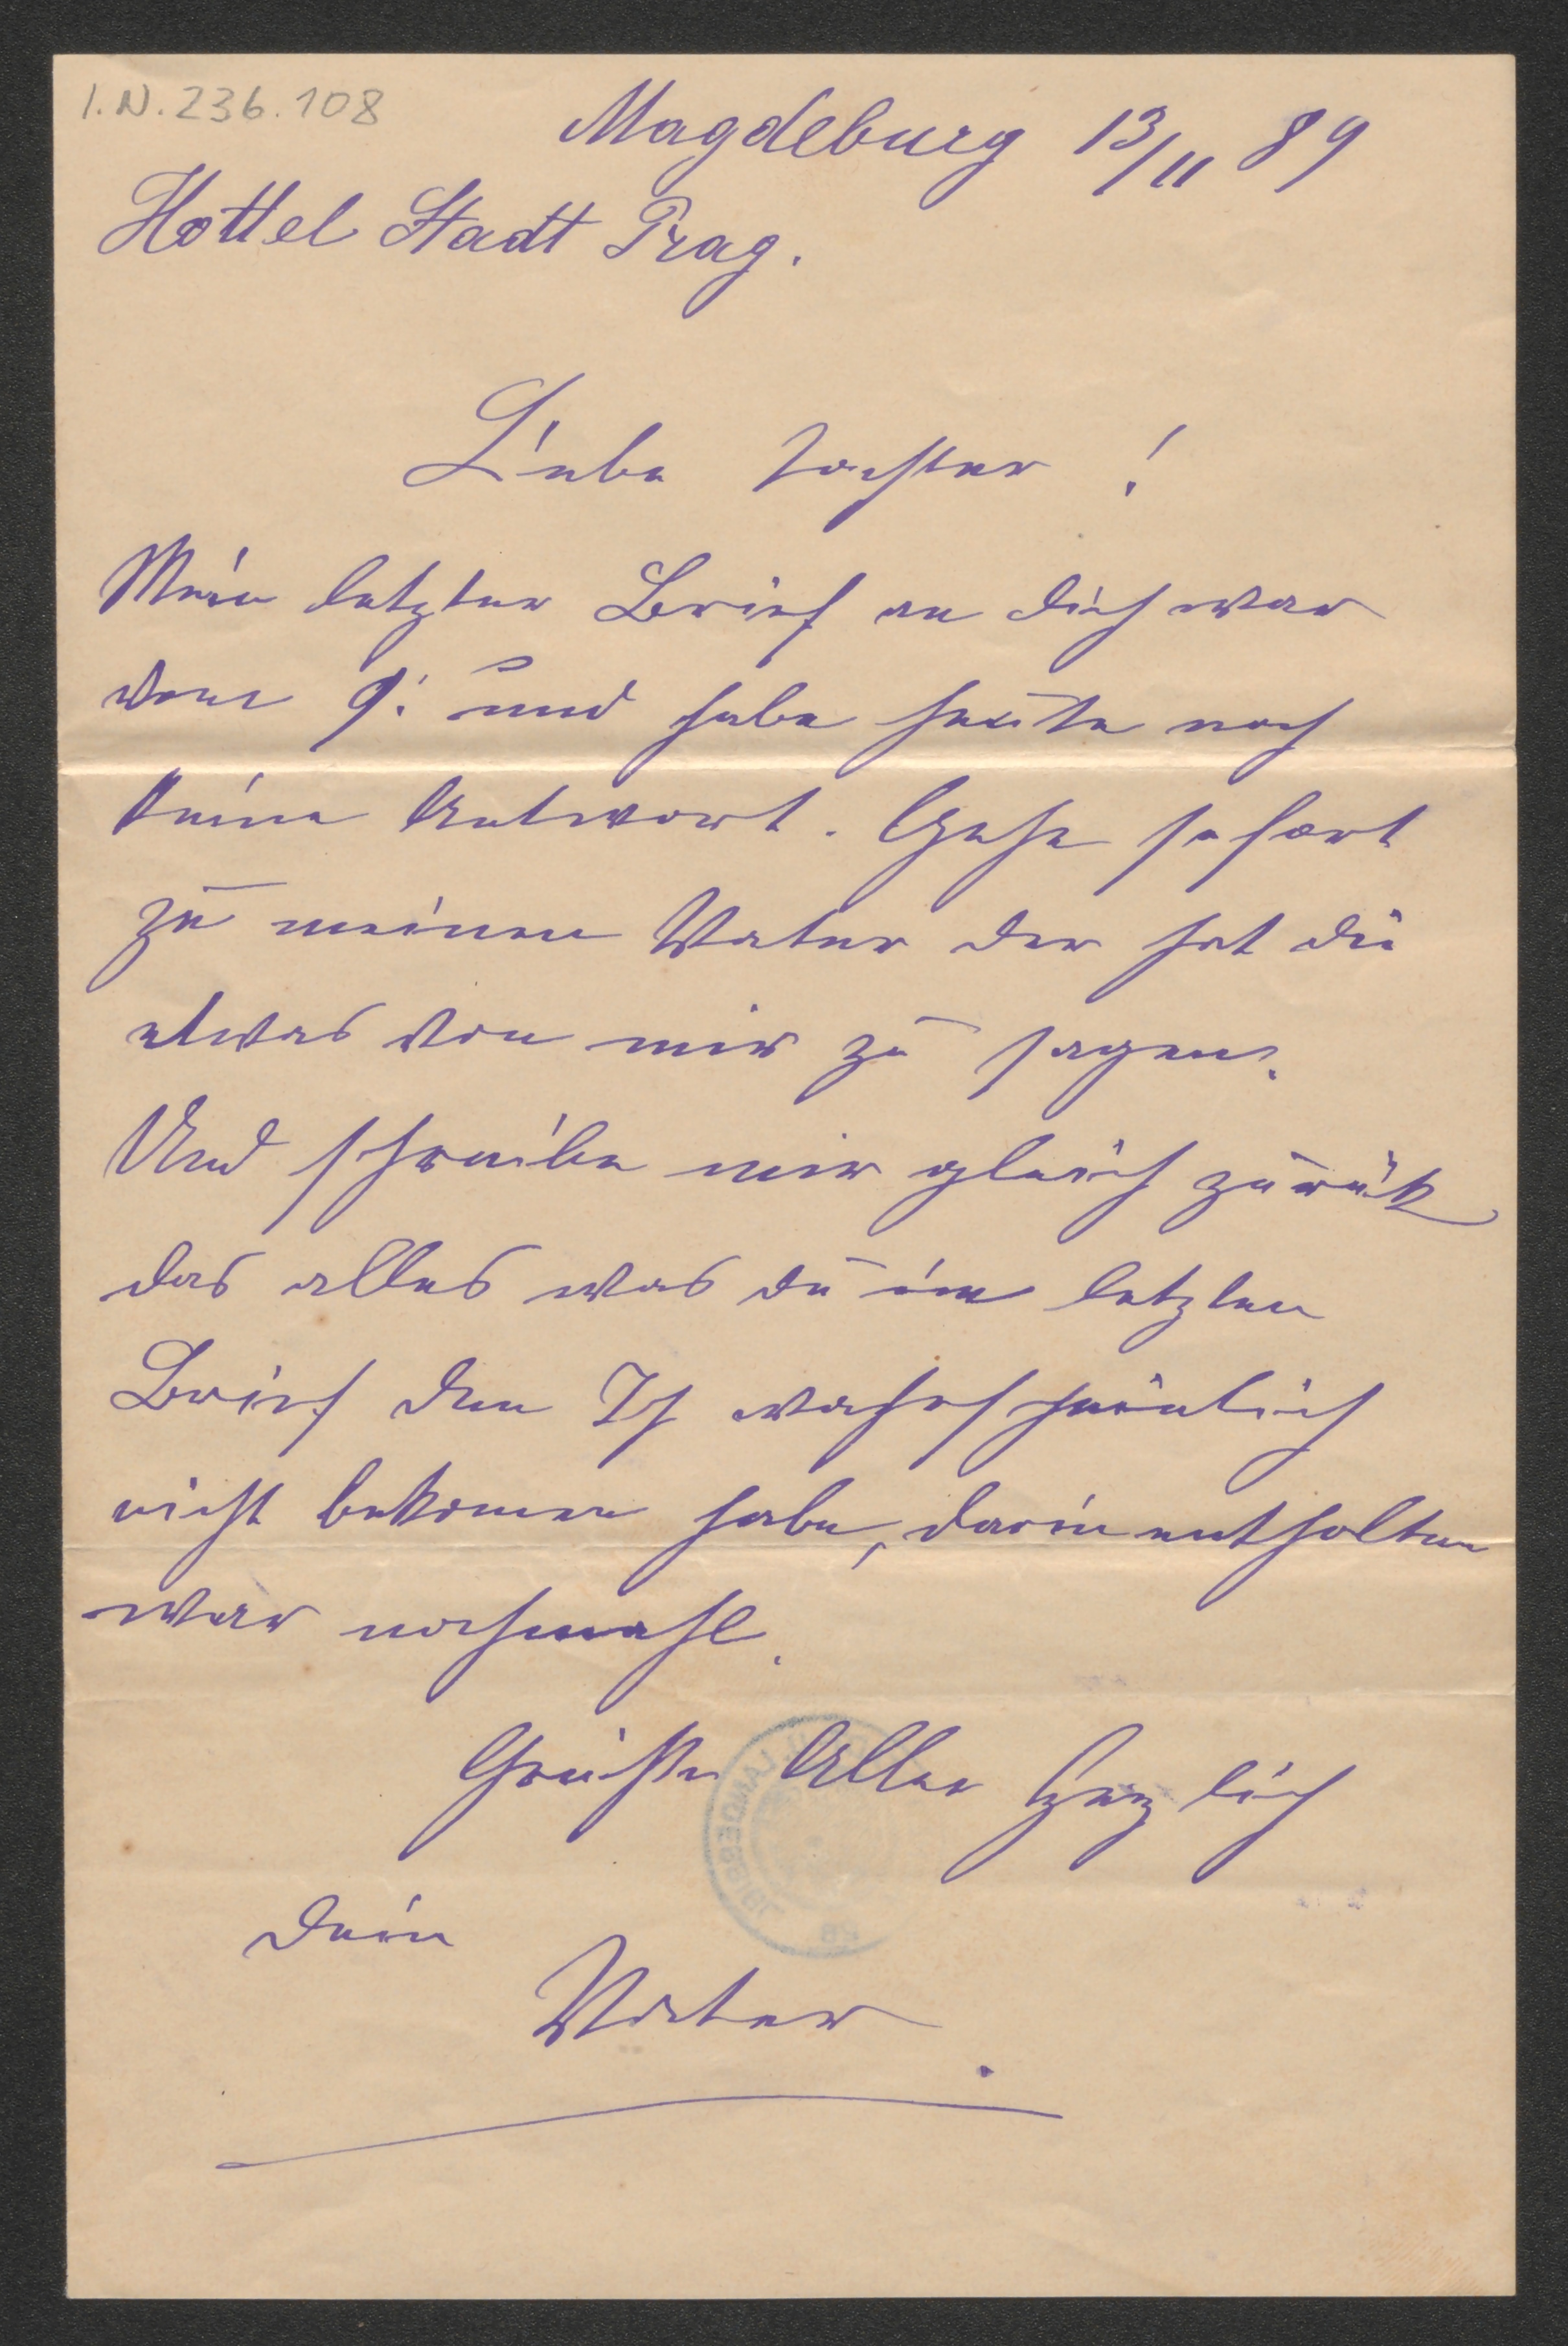 I.N. 236.108
Magdeburg 13/11 89
Hottel Stadt Prag.
Liebe Tochter!
Mein letzter Brief an dich war
vom 9. und habe heute noch
keine Antwort. Gehe sofort
zu meinen Vater der hat dir
etwas von mir zu sagen.
Und schreibe mir gleich zurük
das alles was du im letzten
Brief den Ich wahrscheinlich
nicht bekomen habe, darin enthalten
war nochmahl.
Grüsse Alle herzlich
dein
Vater.